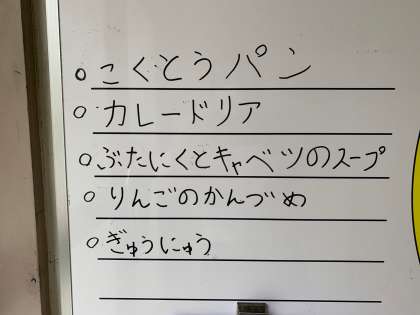 ○こくとうパン
○カレードリア
○ぶたにくとキャベツのスープ
○りんごのかんづめ
○ぎゅうにゅう